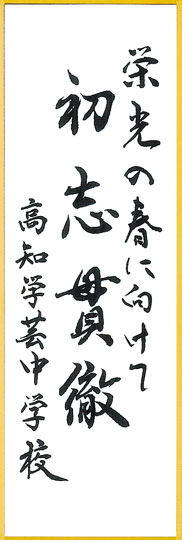 栄光の春に向けて
初志貫徹
高知学芸中学校